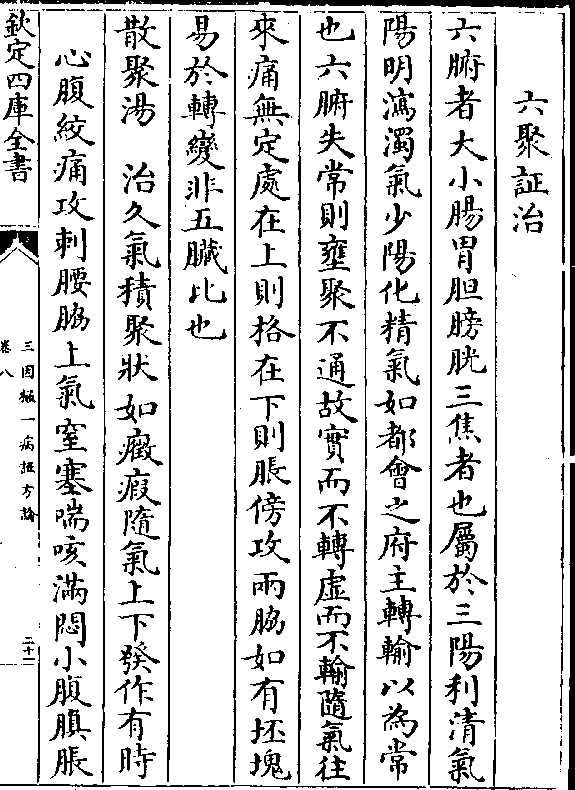 六聚証治
六腑者大小腸胃胆膀胱三焦者也屬於三陽利清氣
陽明瀉濁氣少陽化精氣如都會之府主轉輸以為常
也六腑失常則壅聚不通故實而不轉虚而不輸隨氣往
來痛無定處在上則格在下則脹傍攻兩脇如有坯塊
易於轉變非五臓比也
散聚湯　治久氣積聚狀如癥瘕隨氣上下發作有時
心腹絞痛攻刺腰脇上氣窒塞喘咳滿悶小腹䐜脹
欽定四庫全書
三因極一病證方論
卷八
二十一